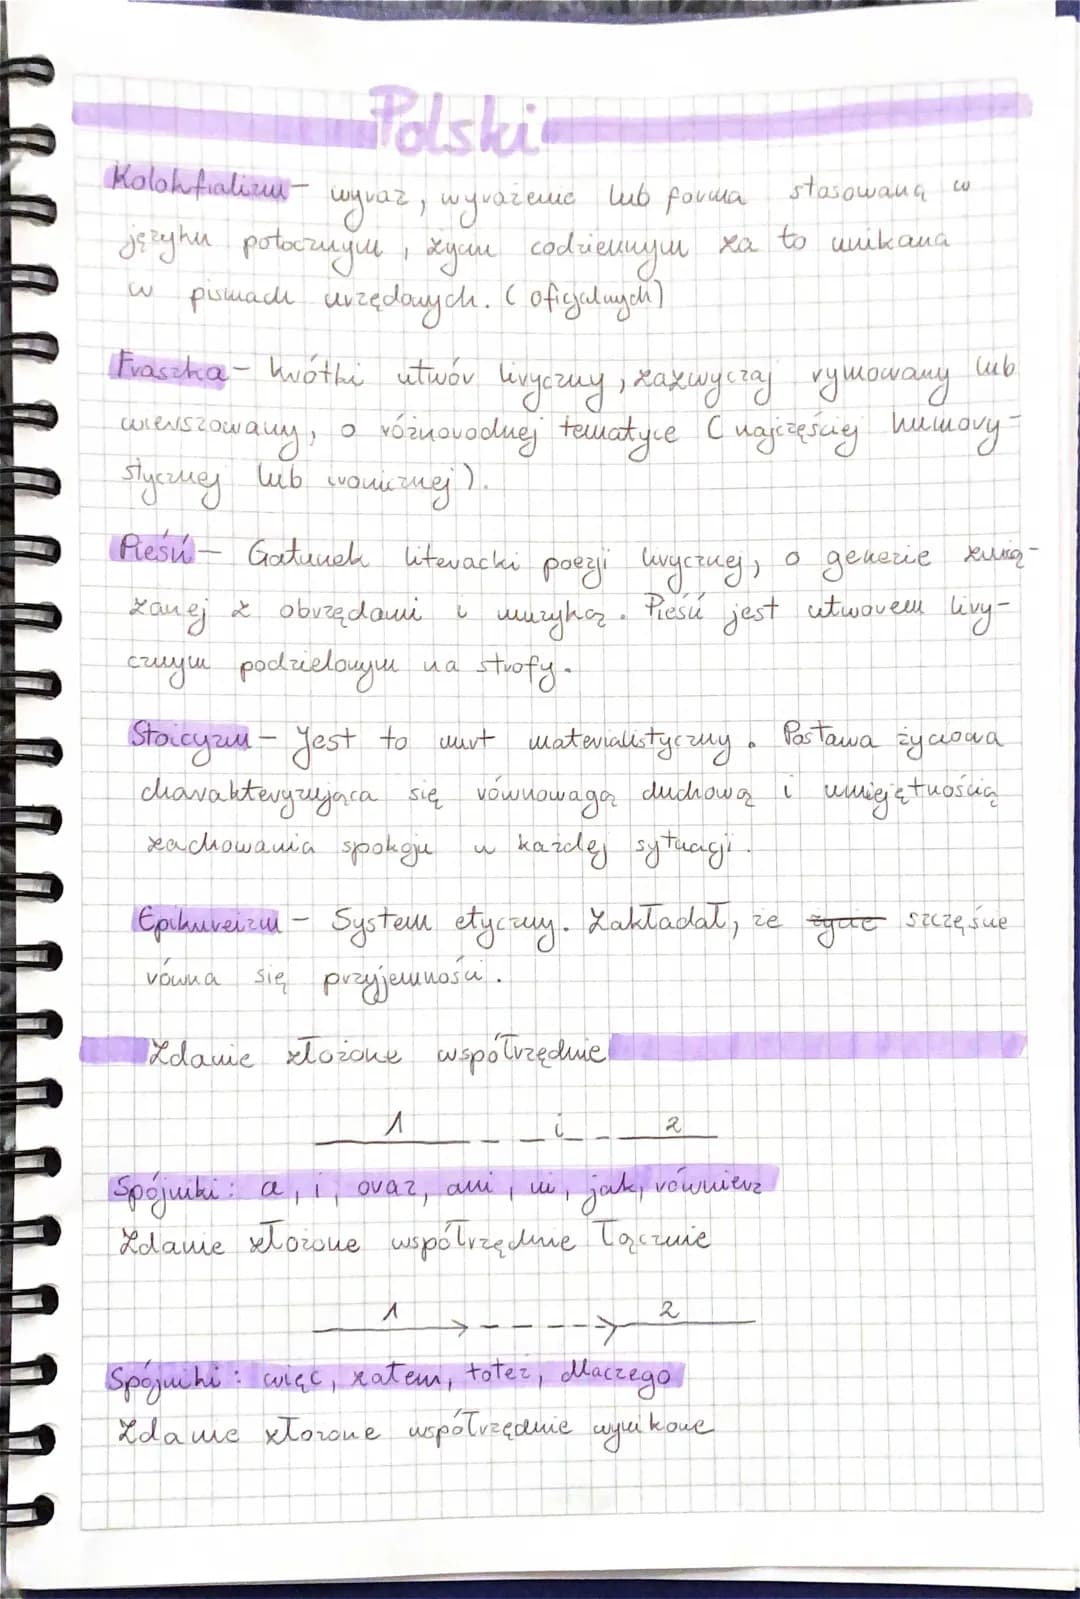 Polski
Kolokfializm - wyraz, wyrażenie lub forma stasowaną w
języku potocznym, życiu codziennym za to unikana
w pismach urzędowych. (oficjalnych)
Fraszka - krótki utwór liryczny, zazwyczaj rymowany lub
wierszowany, o różnorodnej tematyce (najczęściej humory-
stycznej lub ironicznej).
Pieśń - Gatunek literacki poezji lirycznej, o genezie zwią-
zanej z obrzędami i muzyką. Pieśń jest utworem liry-
cznym podzielonym na strofy.
Stoicyzm - Jest to nurt materialistyczny. Postawa życiowa
charakteryzująca się równowagą duchową i umiejętnością
zachowania spokoju w każdej sytuacji.
Epikureizm - System etyczny. Zakładał, że życie szczęście
równa się przyjemności.
Zdanie złożone współrzędnie
1 i 2
Spójniki: a, i, oraz, ani, ni, jak, równierz
Zdanie złożone współrzędnie łącznie
1 2
Spójniki: więc, zatem, toteż, dlaczego
Zdanie złożone współrzędnie wynikowe